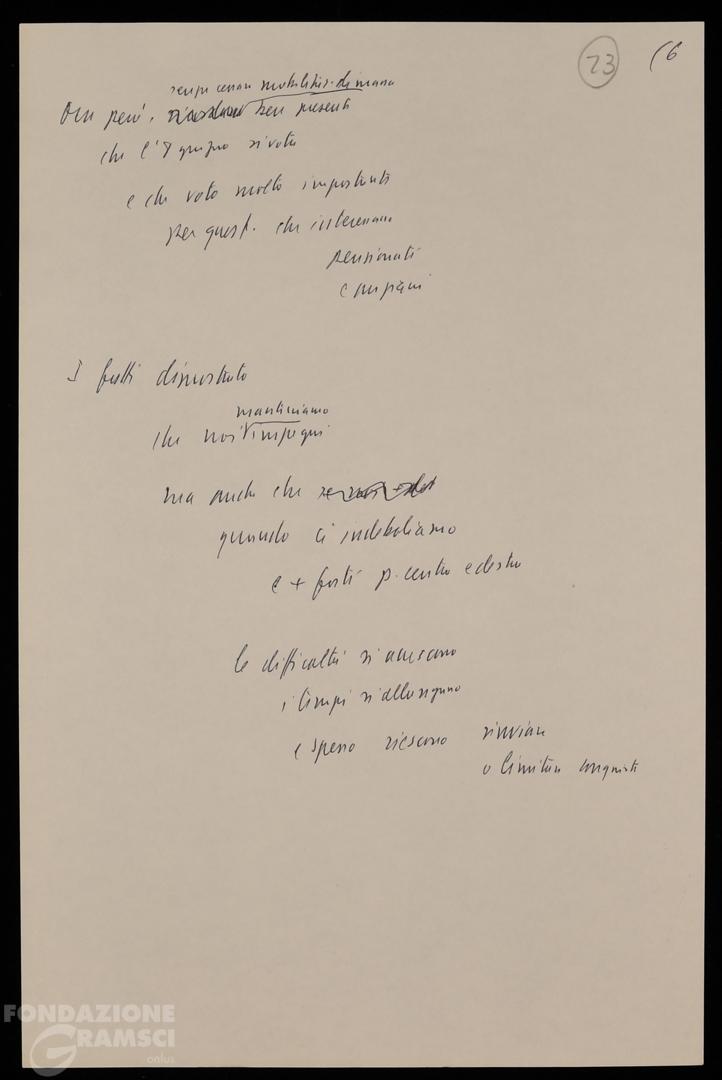 23
(6
senza cessare mobilitaz. di massa
Ora però, ben presenti
che l'8 giugno si vota
e che voto molto importante
per quest. che interessano
pensionati
e anziani
I fatti dimostrato
manteniamo
che noi impegni
ma anche che
quando ci indeboliamo
e + forti p. centro e destra
le difficoltà si accrescono
i tempi si allungano
e spesso riescono rinviare
o limitare conquiste
FONDAZIONE
GRAMSCI
onlus